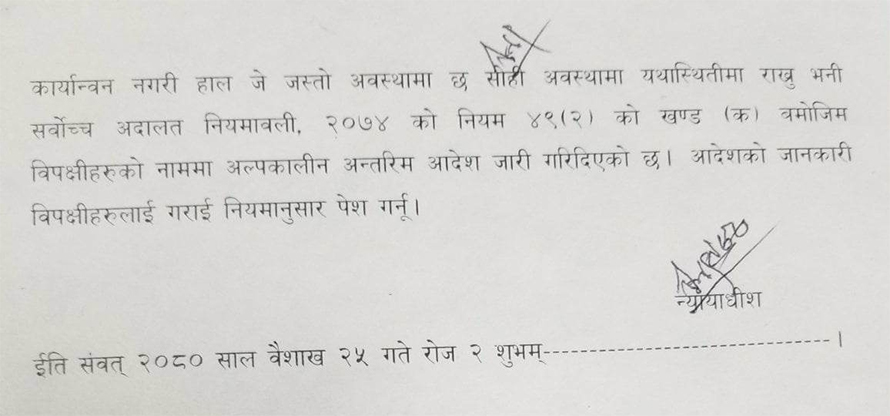 कार्यान्वन नगरी हाल जे जस्तो अवस्थामा छ सोही अवस्थामा यथास्थितीमा राख्नु भनी
सर्वोच्च अदालत नियमावली, २०७४ को नियम ४९(२) को खण्ड (क) वमोजिम
विपक्षीहरुको नाममा अल्पकालीन अन्तरिम आदेश जारी गरिदिएको छ। आदेशको जानकारी
विपक्षीहरुलाई गराई नियमानुसार पेश गर्नू।
न्यायाधीश
ईति संवत् २०८० साल वैशाख २५ गते रोज २ शुभम्------------------------------।